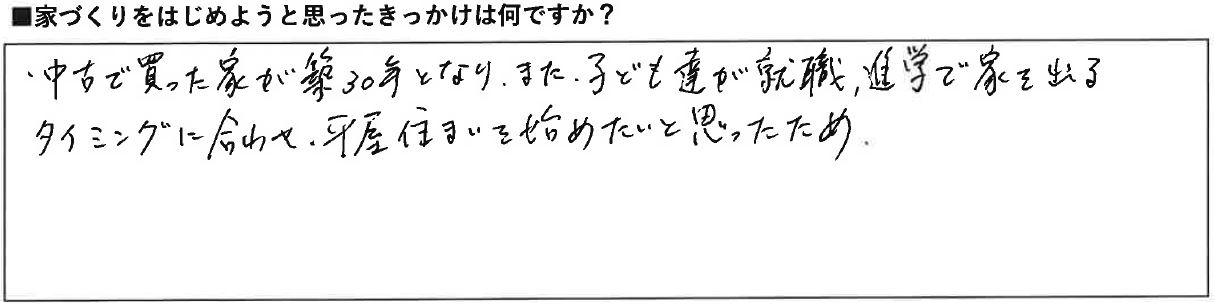 ■家づくりをはじめようと思ったきっかけは何ですか？
・中古で買った家が築30年となり、また、子ども達が就職,進学で家を出る
タイミングに合わせ、平屋住まいを始めたいと思ったため.